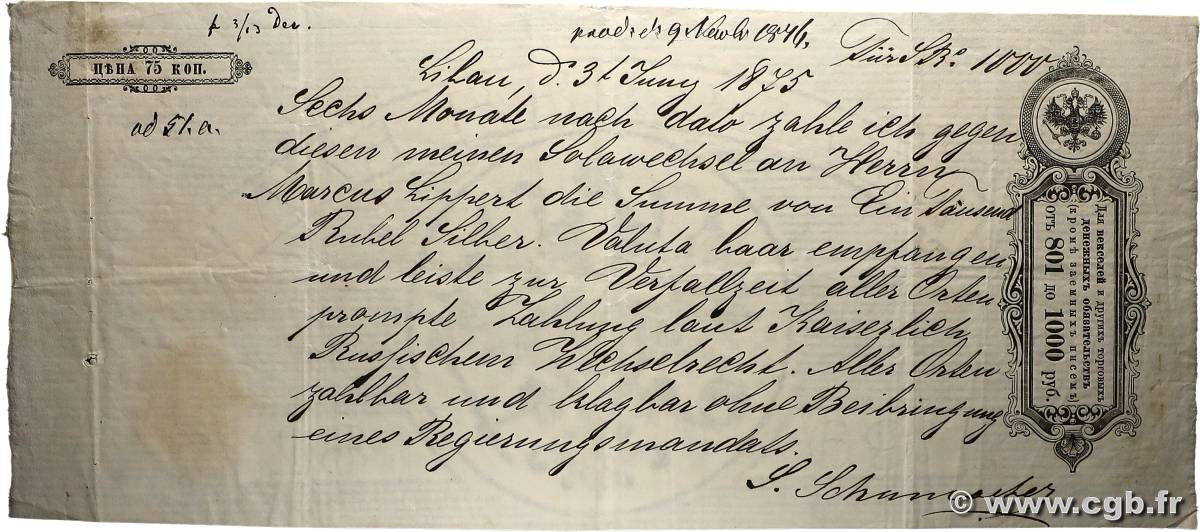 3/13 Dec.
9 Novbr 1876.
Für SRo 1000
ЦѢНА 75 КОП.
Libau, d. 31 Juny 1875
ad 51.a.
Sechs Monate nach dato zahle ich gegen
diesen meinen Solawechsel an Herrn
Marcus Lippert die Summe von Ein Tausend
Rubel Silber. Valuta baar empfangen
und leiste zur Verfallzeit aller Orten
prompte Zahlung laut Kaiserlich
Russischem Wechselrecht. Aller Orten
zahlbar und klagbar ohne Beibringung
eines Regierungsmandats.
S. Schumacher
Для векселей и другихъ торговыхъ
денежныхъ обязательствъ
(кромѣ заемныхъ писемъ)
отъ 801 до 1000 руб.
© www.cgb.fr